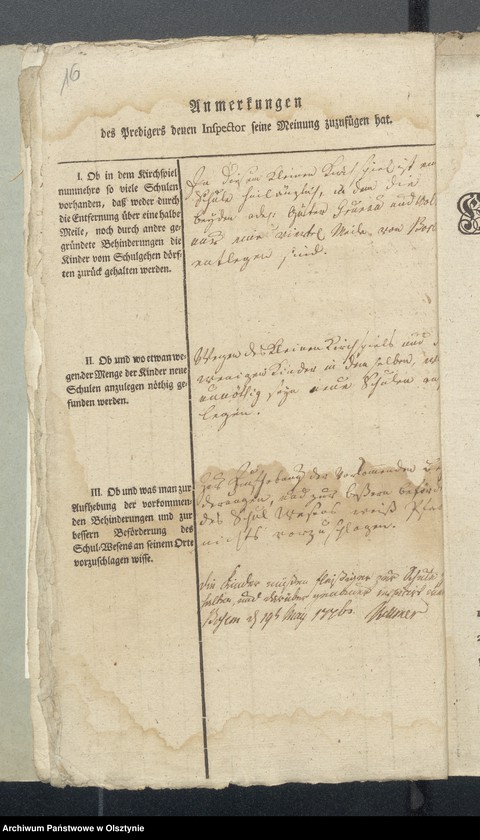 16
Anmerkungen
des Predigers denen Inspector seine Meinung zuzufügen hat.
I. Ob in dem Kirchspiel
nunmehro so viele Schulen
vorhanden, daß weder durch
die Entfernung über eine halbe
Meile, noch durch andre ge-
gründete Behinderungen die
Kinder vom Schulgehen dörf-
ten zurück gehalten werden.
In diesem kleinen Kirchspiel ist eine
Schule hinlänglich, in dem die
beyden adel. Güter und
nur eine viertel Meile von
entlegen sind.
II. Ob und wo etwan we-
gen der Menge der Kinder neue
Schulen anzulegen nöthig ge-
funden werden.
Wegen des kleinen Kirchspiels und
wenigen Kinder in demselben,
unnöthig seyn neue Schulen an
legen.
III. Ob und was man zur
Aufhebung der vorkommen-
den Behinderungen und zur
bessern Beförderung des
Schul-Wesens an seinem Orte
vorzuschlagen wisse.
der vorkommenden
und zur bessern
des Schul Wesens weiß
nichts vorzuschlagen.
die Kinder müßen fleißiger zur Schule
halten, und
May
Archiwum Państwowe w Olsztynie